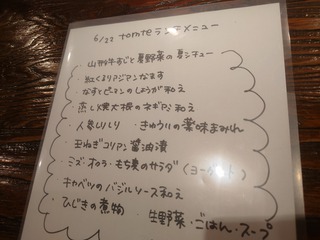 6/23 tomteランチメニュー
・山形牛すじと夏野菜の夏シチュー
・紅くるりアジアンなます
・なすとピーマンのしょうが和え
・蒸し燻大根のネギアン和え
・人参しりしり ・きゅうりの薬味まみれ
・玉ねぎコリアン醤油漬
・ミズ・オクラ・もち麦のサラダ(ヨーグルト)
・キャベツのバジルソース和え
・ひじきの煮物 ・生野菜・ごはん・スープ